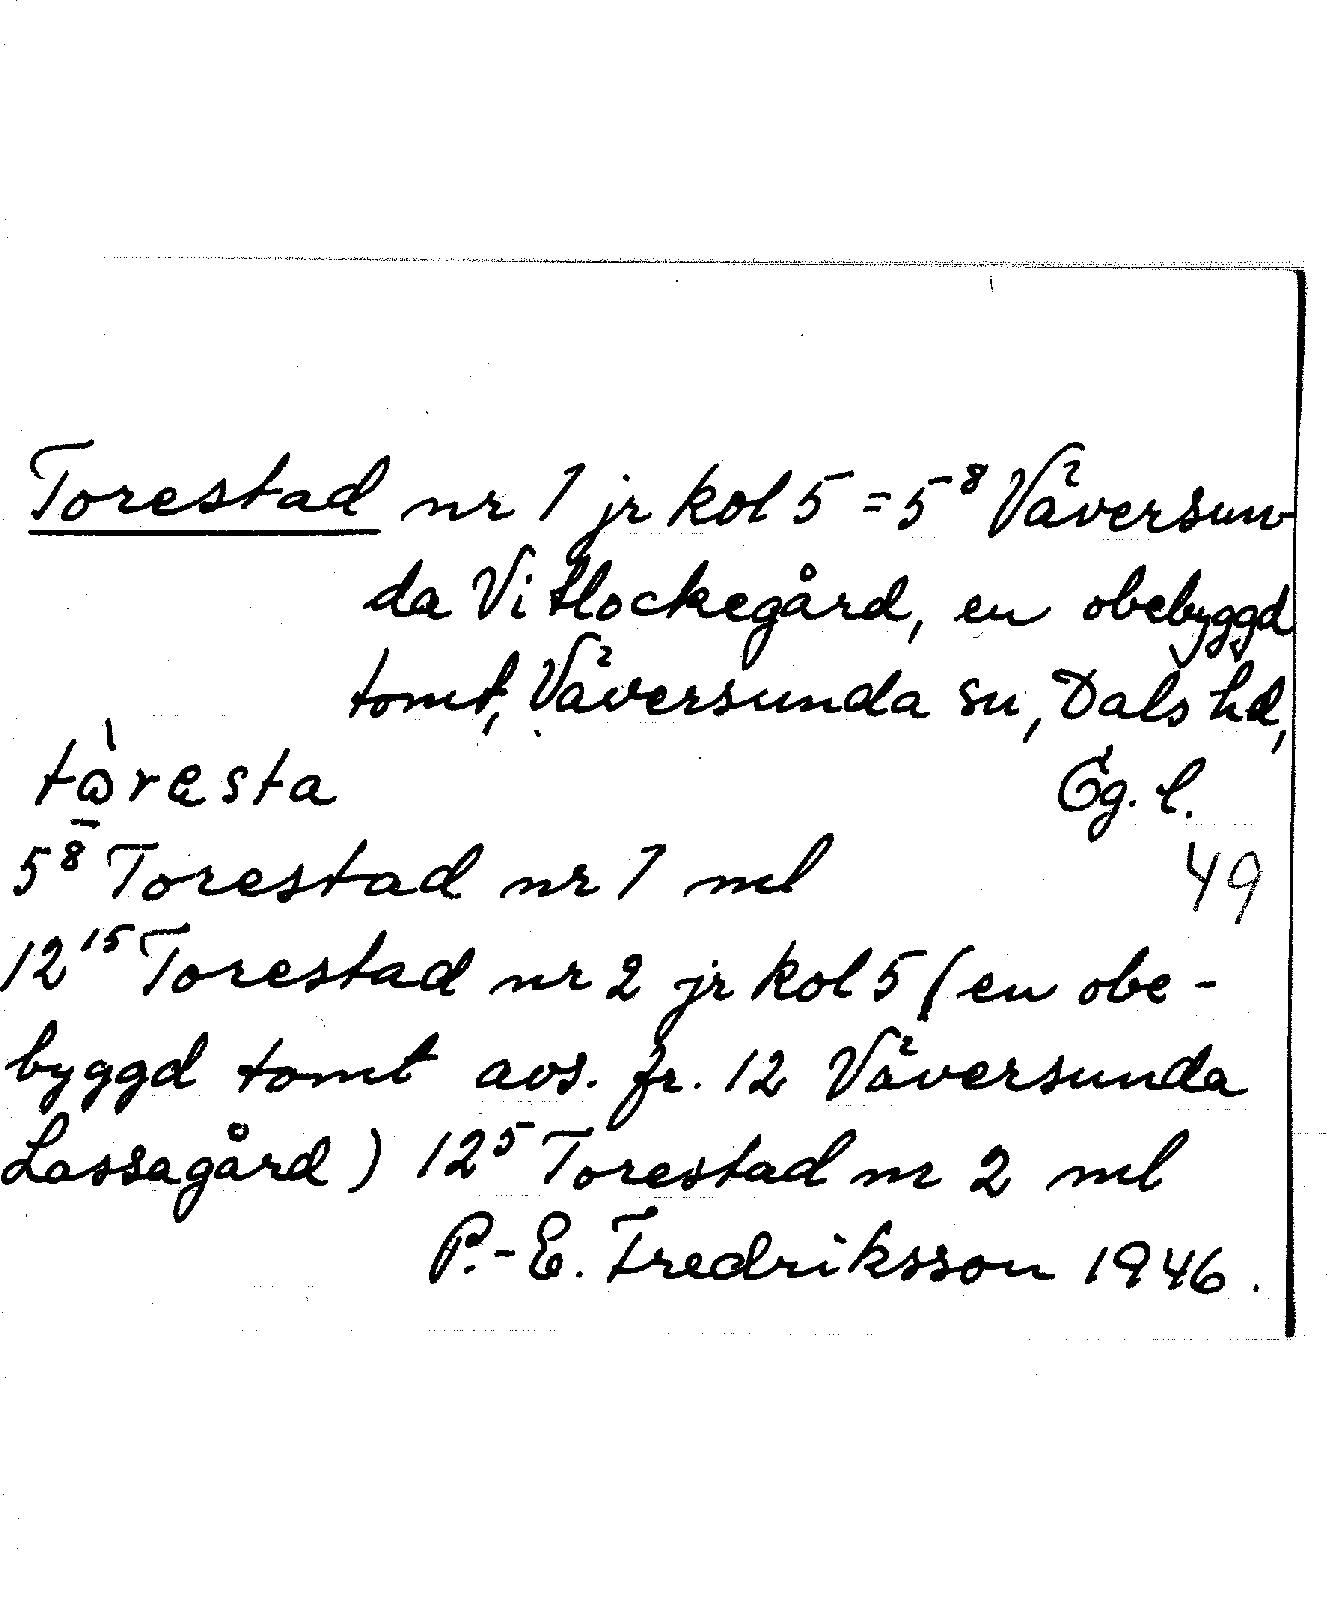 Torestad nr 1 jr kol 5 = 5⁸ Väversun-
da Vitlockegård, en obebyggd
tomt, Väversunda sn, Dals hd,
Ög. l.
tòresta
49
5⁸ Torestad nr 1 ml
12¹⁵ Torestad nr 2 jr kol 5 (en obe-
byggd tomt avs. fr. 12 Väversunda
Lassagård) 12⁵ Torestad nr 2 ml
P.-E. Fredriksson 1946.